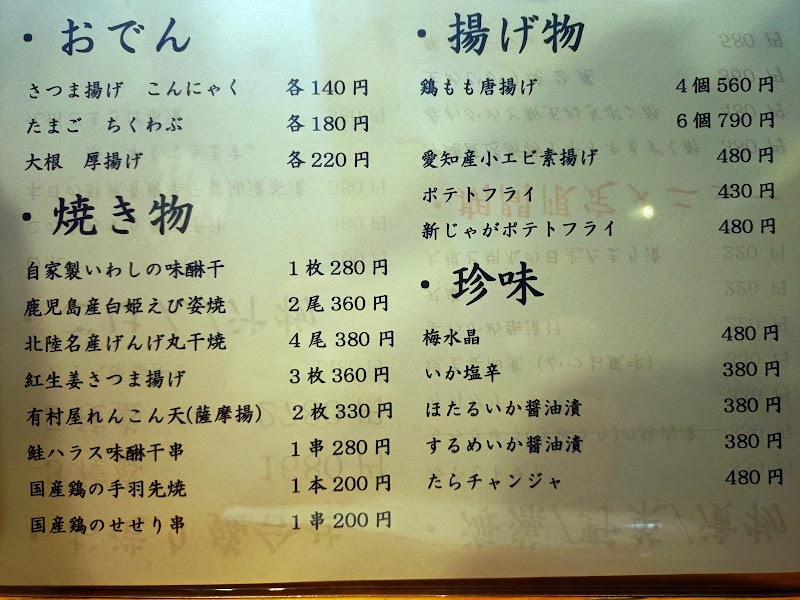 ・おでん
さつま揚げ　こんにゃく　各140円
たまご　ちくわぶ　各180円
大根　厚揚げ　各220円
・焼き物
自家製いわしの味醂干　1枚280円
鹿児島産白姫えび姿焼　2尾360円
北陸名産げんげ丸干焼　4尾380円
紅生姜さつま揚げ　3枚360円
有村屋れんこん天(薩摩揚)　2枚330円
鮭ハラス味醂干串　1串280円
国産鶏の手羽先焼　1本200円
国産鶏のせせり串　1串200円
・揚げ物
鶏もも唐揚げ　4個560円
6個790円
愛知産小エビ素揚げ　480円
ポテトフライ　430円
新じゃがポテトフライ　480円
・珍味
梅水晶　480円
いか塩辛　380円
ほたるいか醤油漬　380円
するめいか醤油漬　380円
たらチャンジャ　480円